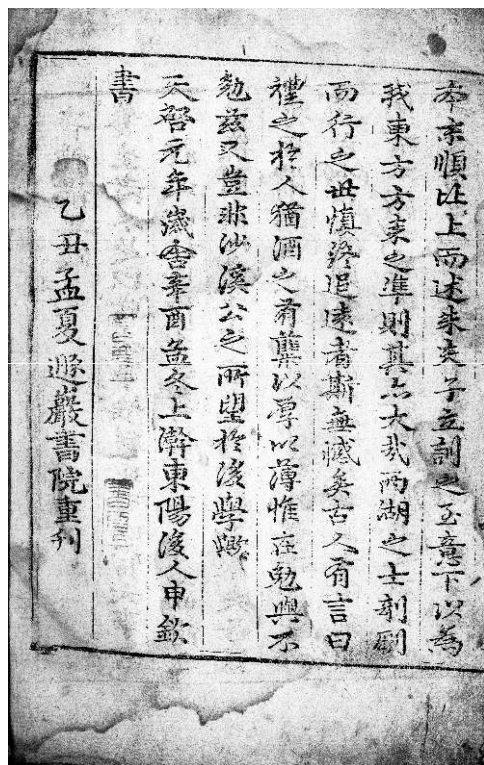 本末順比上而述朱夫子立訓之至意下以爲
我東方方來之準則其亦大哉兩湖之士刻劂
而行之世愼終追遠者斯無憾矣古人有言曰
禮之於人猶酒之有蘖以厚以薄惟在勉與不
勉玆又豈非沙溪公之所望於後學歟
天啓元年歲舍辛酉孟冬上澣東陽後人申欽
書
乙丑孟夏遯巖書院重刊